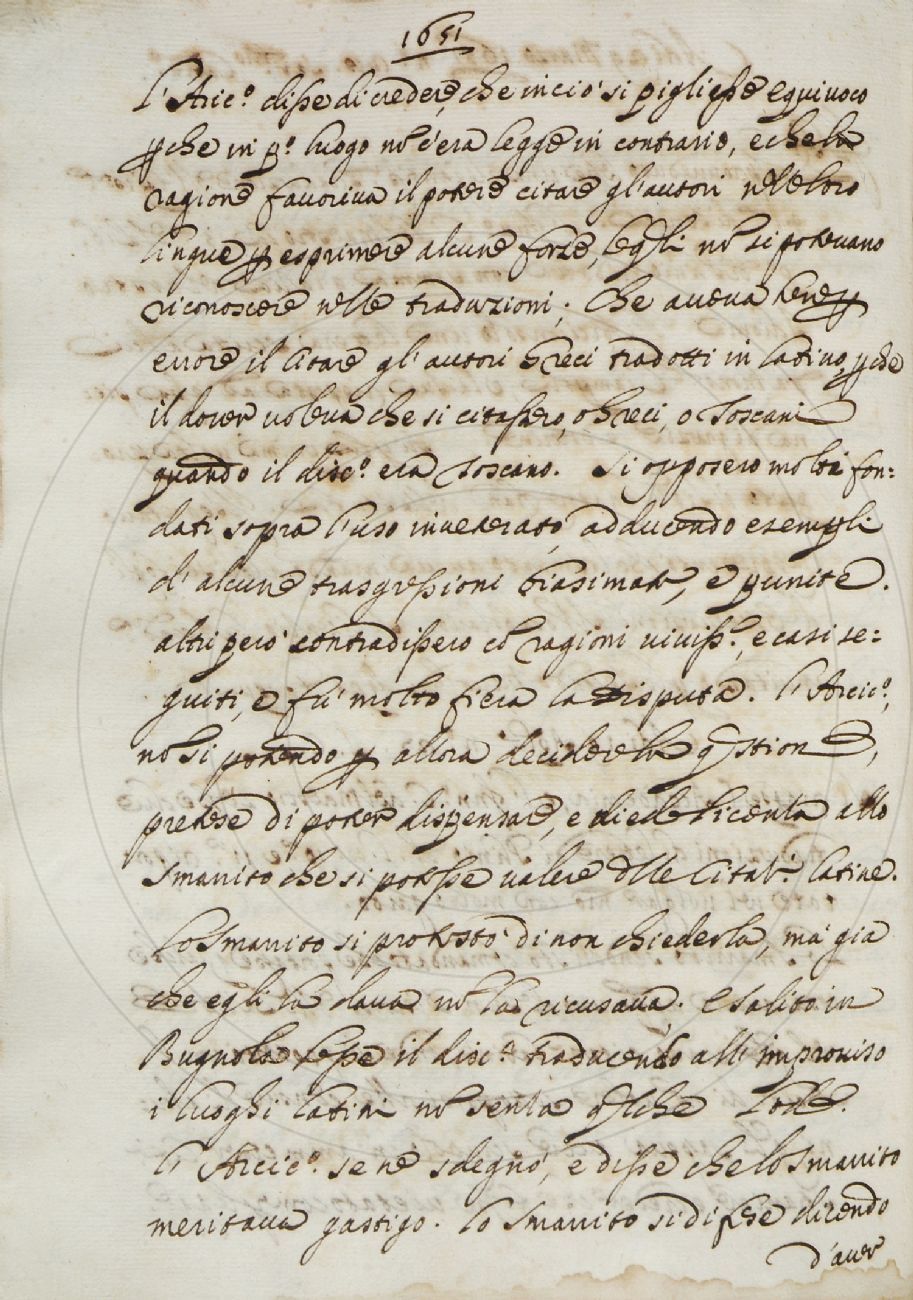 1651
L'Aric.º disse di credere, che in ciò si pigliasse equivoco
p che in p.º luogo nō c'era legge in contrario, e che la
ragione favoriva il potere citare gl'autori nelle loro
lingue p esprimere alcune forze, le q̃li nō si potevano
riconoscere nelle traduzioni; che aveva bene p
errore il citare gl'autori Greci tradotti in latino, p che
il dover voleva che si citassero, o Greci, o Toscani
quando il disc.º era Toscano. Si opposero molti fon:
dati sopra l'uso inveterato, adducendo esempli
d'alcune trasgressioni biasimate, e punite.
altri però contradissero cō ragioni viviss.e, e casi se:
guiti, e fù molto fiera la disputa. l'Arcic.º,
nō si potendo p allora decidere la q̃stione,
pretese di poter dispensare, e diede licenza allo
Smarrito che si potesse valere dlle Citat.i latine.
Lo Smarrito si protestò di non chiederla, mà già
che egli la dava nō la ricusava. E salito in
Bugnola lesse il disc.º traducendo all'improviso
i luoghi latini nō senza q̃lche lode.
l'Arcic.º se ne sdegnò, e disse che lo Smarrito
meritava gastigo. lo Smarrito si difese dicendo
d'aver